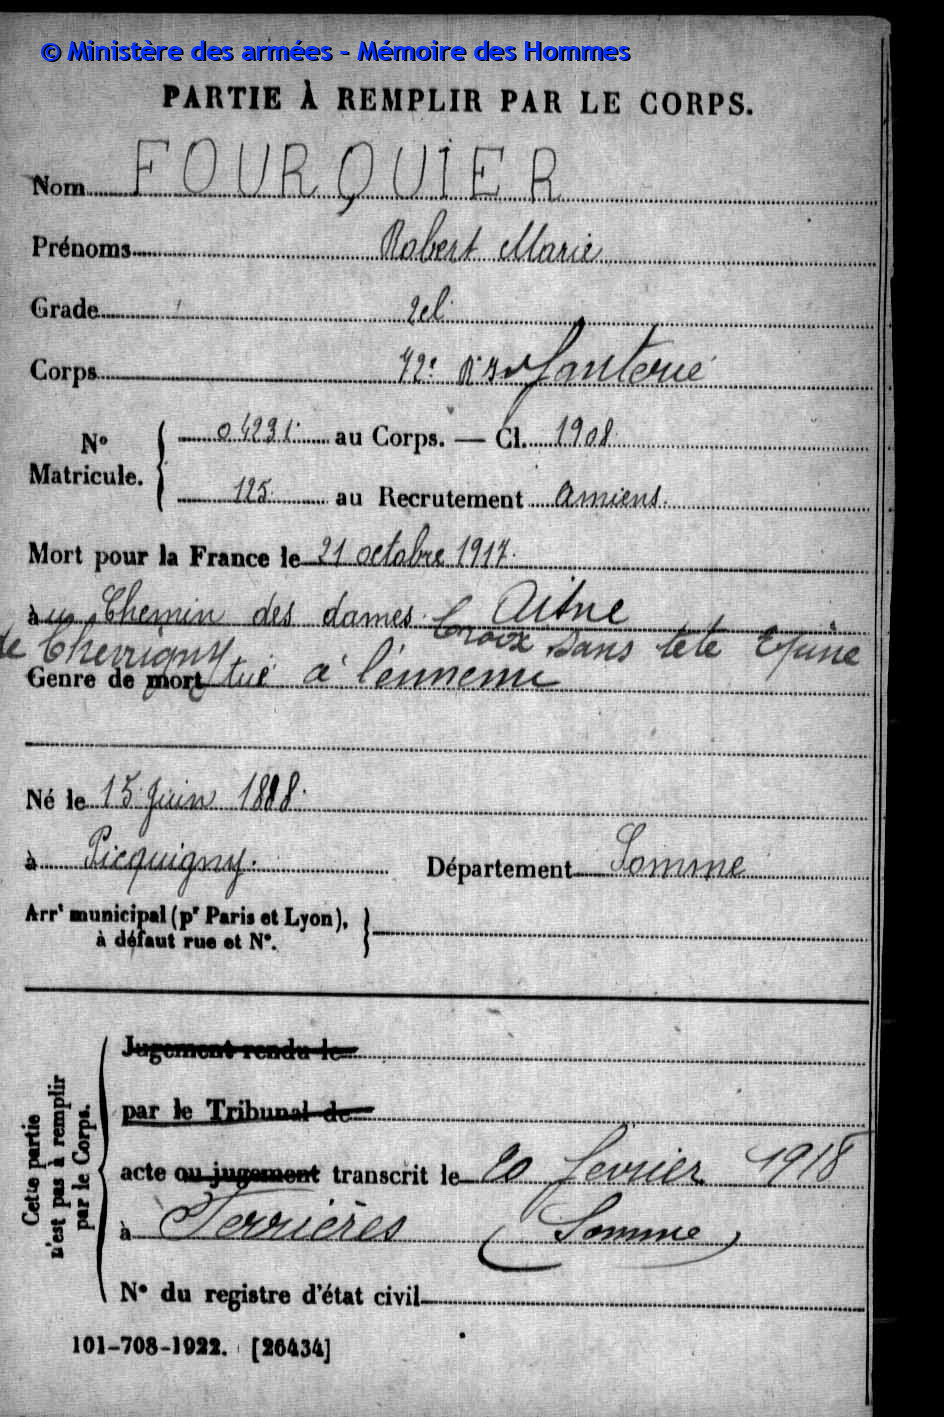 © Ministère des armées - Mémoire des Hommes
PARTIE À REMPLIR PAR LE CORPS.
Nom FOURQUIER
Prénoms Robert Marie
Grade 2cl
Corps 72e Rt Infanterie
No 04231 au Corps. — Cl. 1908
Matricule. 125 au Recrutement Amiens.
Mort pour la France le 21 octobre 1917.
à au Chemin des dames. Aisne
Croix sans tête
de Chevrigny
Genre de mort tué à l'ennemi
Né le 15 juin 1888.
à Picquigny. Département Somme
Arrt municipal (pr Paris et Lyon),
à défaut rue et No.
Cette partie
n'est pas à remplir
par le Corps.
Jugement rendu le
par le Tribunal de
acte ou jugement transcrit le 20 février 1918
à Ferrières (Somme)
No du registre d'état civil
101-708-1922. [26434]